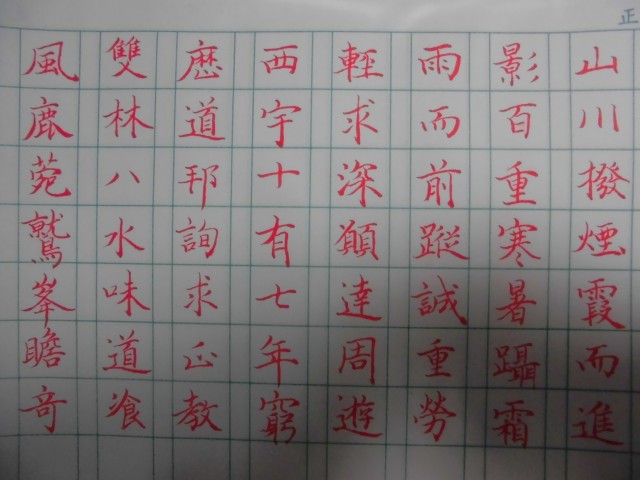 正
山川撥煙霞而進
影百重寒暑躡霜
雨而前蹤誠重勞
輕求深願達周遊
西宇十有七年窮
歷道邦詢求正教
雙林八水味道飡
風鹿菀鷲峯瞻奇